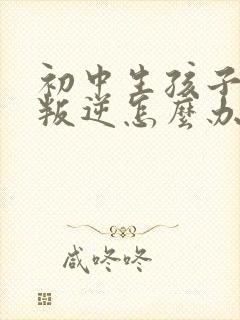 初中生孩子
叛逆怎麼办
咸咚咚